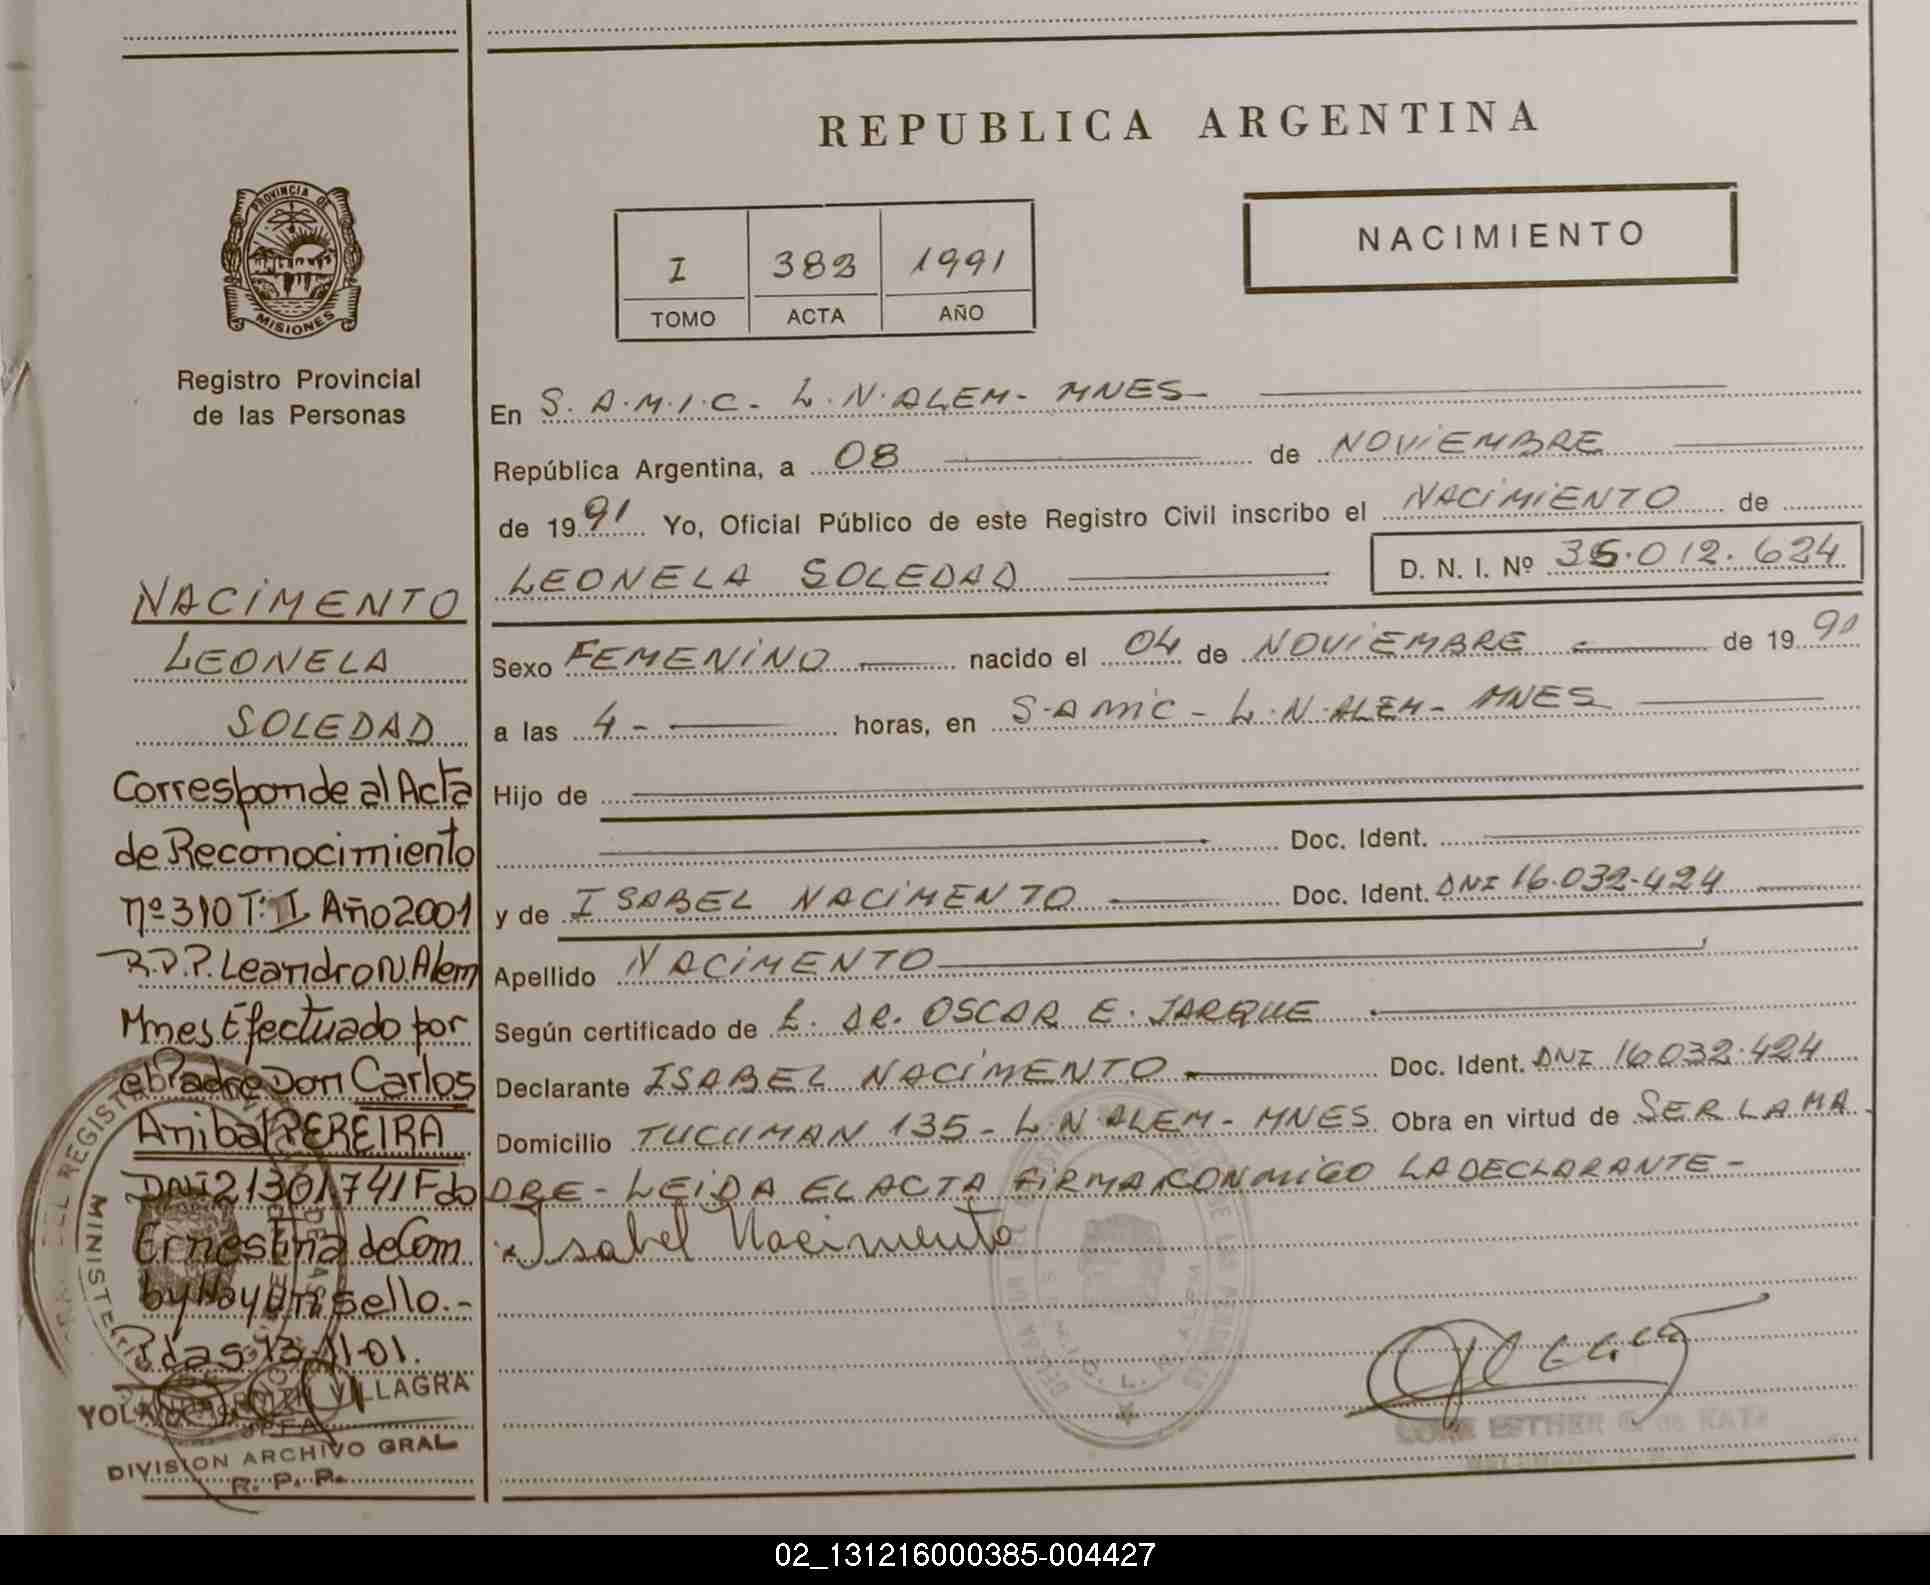 REPUBLICA ARGENTINA
NACIMIENTO
I 383 1991
TOMO ACTA AÑO
PROVINCIA DE
MISIONES
Registro Provincial
de las Personas
NACIMENTO
LEONELA
SOLEDAD
Corresponde al Acta
de Reconocimiento
nº 310 T: II Año 2001
R.P.P. Leandro N. Alem
Mnes Efectuado por
el Padre Don Carlos
Anibal PEREIRA
DNI 21301741 Fdo
Ernestina de Com
by Hay un sello.-
Pdas 13-11-01.
VILLAGRA
JEFA
DIVISION ARCHIVO GRAL
R. P. P.
En S.A.M.I.C. - L.N. ALEM - MNES -
República Argentina, a 08 de NOVIEMBRE
de 1991 Yo, Oficial Público de este Registro Civil inscribo el NACIMIENTO de
LEONELA SOLEDAD D. N. I. Nº 36.012.624
Sexo FEMENINO nacido el 04 de NOVIEMBRE de 1991
a las 4 - horas, en S.A MIC - L.N. ALEM - MNES
Hijo de
Doc. Ident.
y de ISABEL NACIMENTO Doc. Ident. DNI 16.032.424
Apellido NACIMENTO
Según certificado de L. DR. OSCAR E. JARQUE
Declarante ISABEL NACIMENTO Doc. Ident. DNI 16.032.424
Domicilio TUCUMAN 135 - L.N. ALEM - MNES Obra en virtud de SER LA MA
DRE - LEIDA EL ACTA FIRMA CONMIGO LA DECLARANTE -
Isabel Nacimento
ESTHER G. de KATZ
02_131216000385-004427